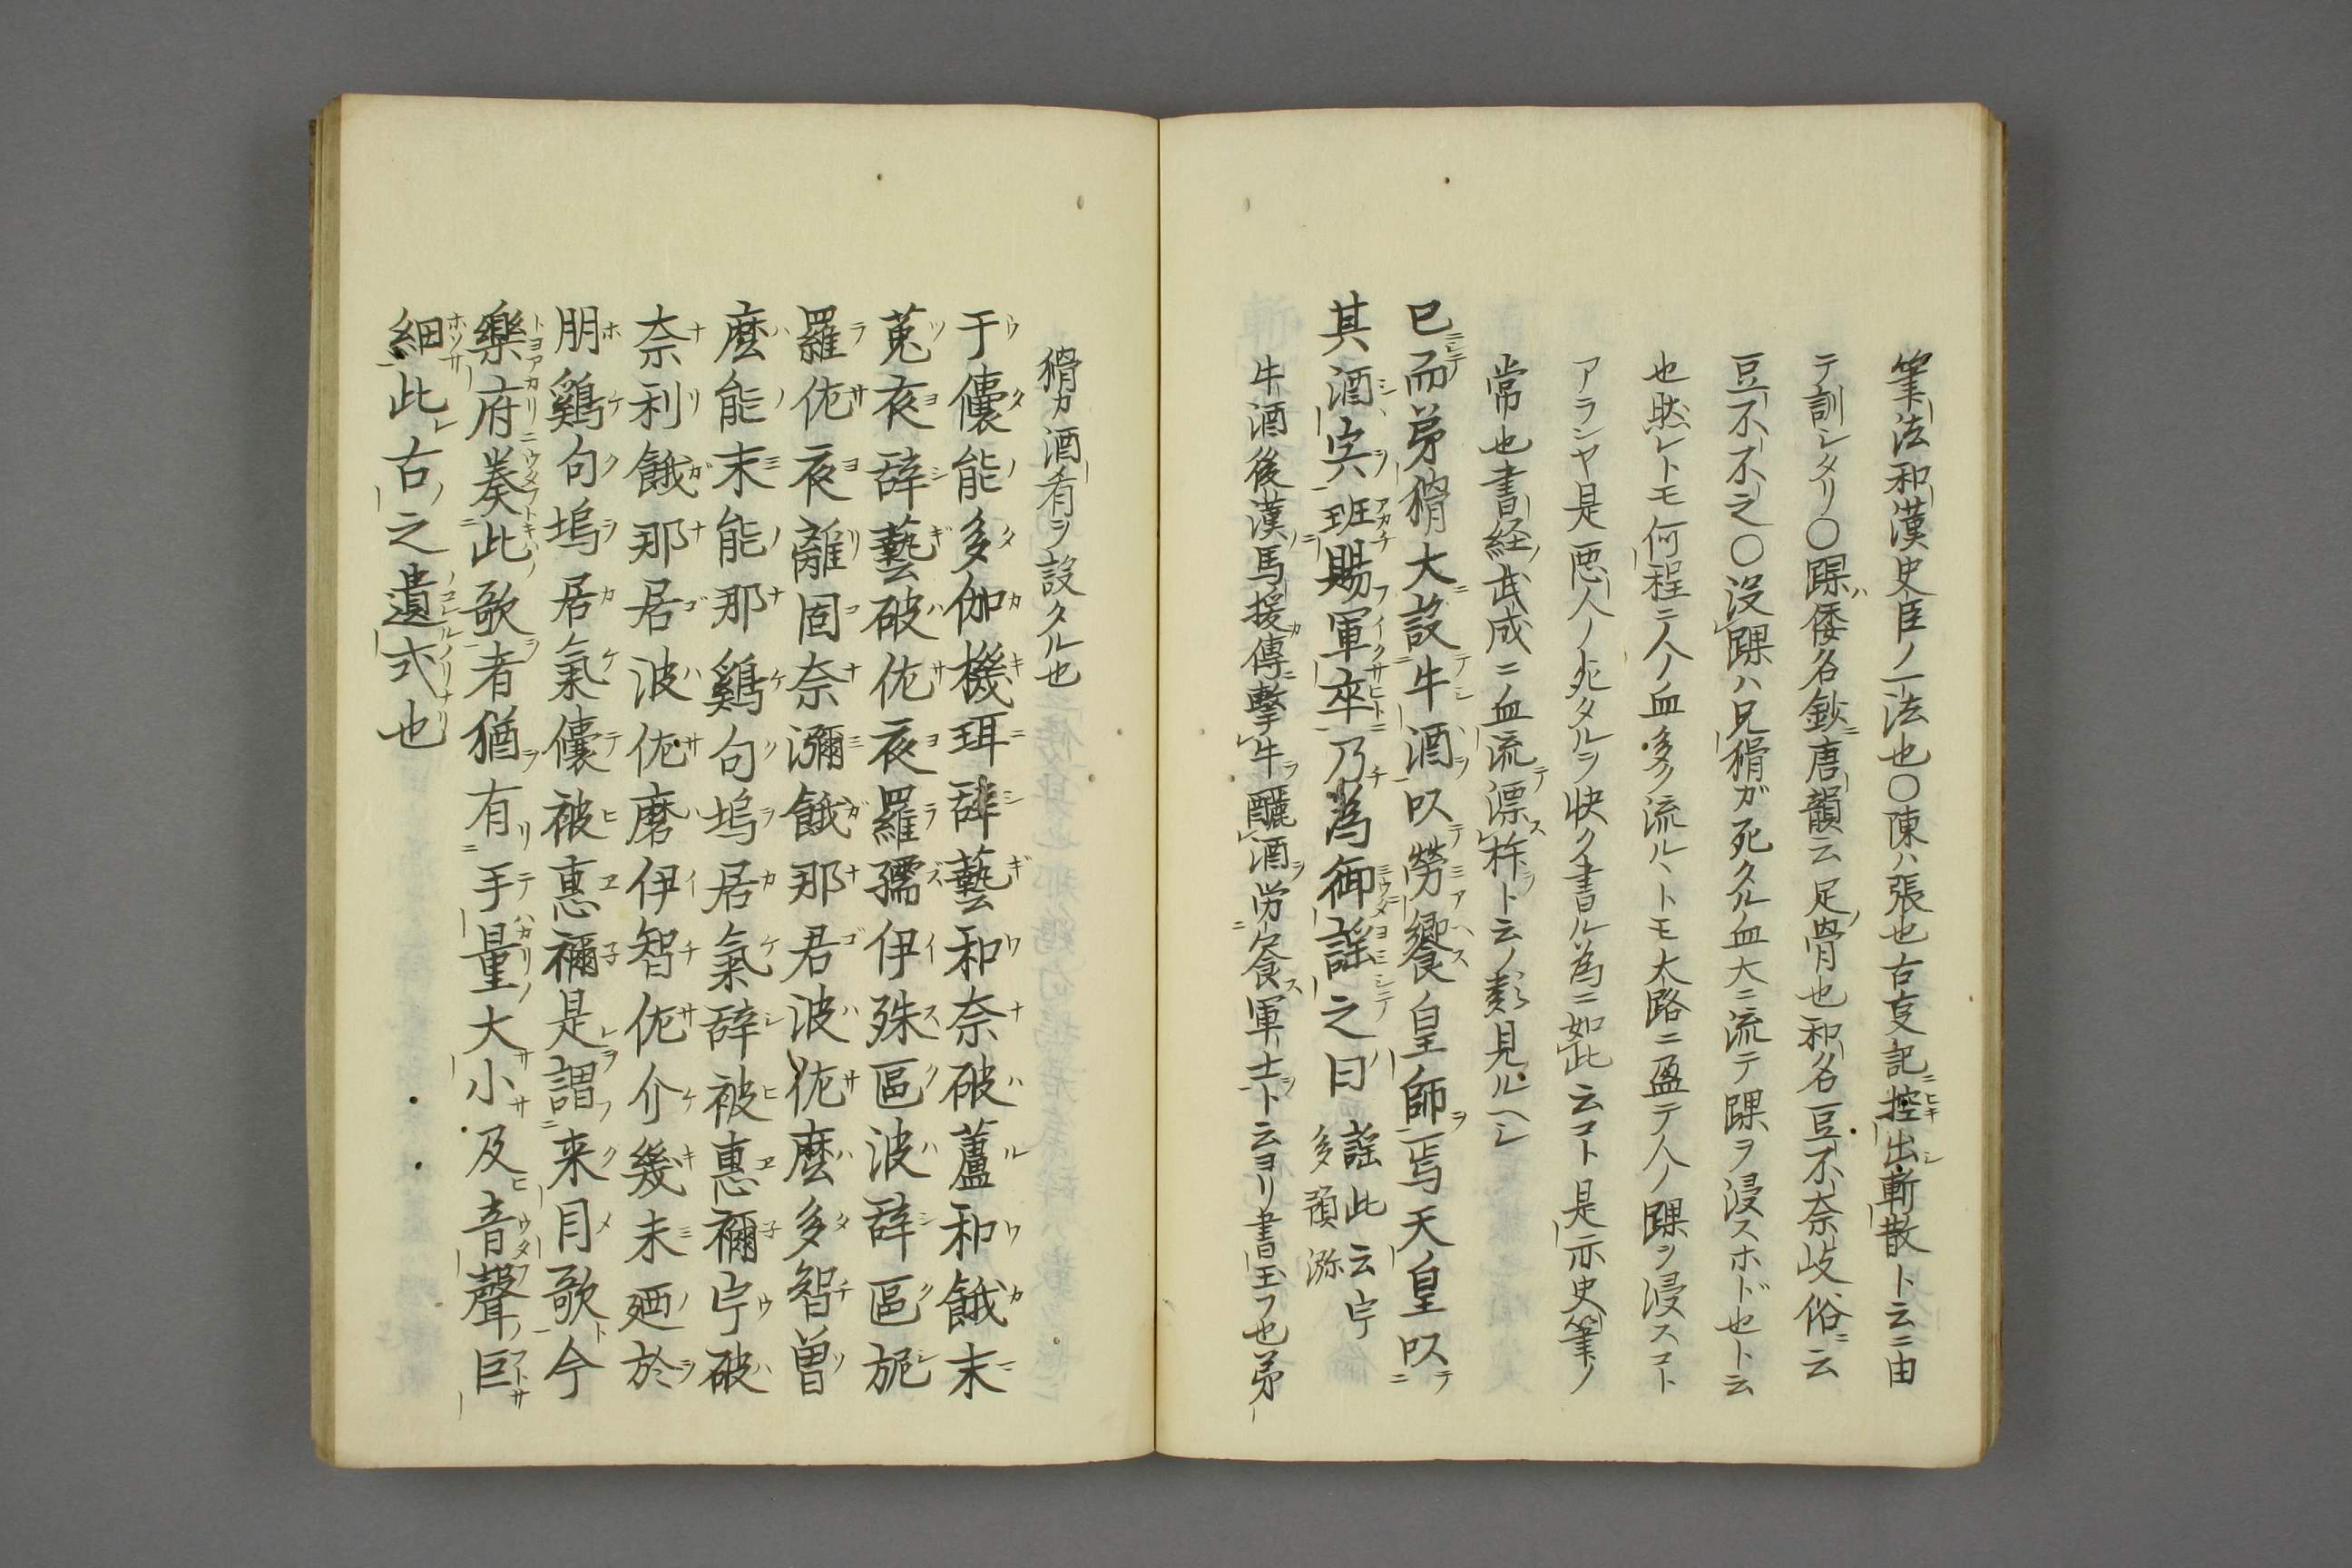 筆法和漢史臣ノ一法也〇陳ハ張也古事記ニ控出斬散ト云ニ由
テ訓シタリ〇踝ハ倭名鈔ニ唐韻云足骨也和名豆不奈岐俗ニ云
豆不不之〇没踝ハ兄猾ガ死タル血大ニ流テ踝ヲ浸スホド也ト云
也然レトモ何程ニ人ノ血多ク流ルヽトモ大路ニ盈テ人ノ踝ヲ浸スコト
アランヤ是悪人ノ死タルヲ快ク書ル為ニ如此云コト是亦史筆ノ
常也書経武成ニ血流漂杵ト云ノ類見ルヘシ
已而弟猾大設牛酒以勞饗皇師焉天皇以
其酒宍班賜軍卒乃為御謡之曰 謡此云宇多預瀰
牛酒後漢馬援傳ニ撃牛釃酒労饗軍士ト云ヨリ書玉フ也弟
猾カ酒肴ヲ設タル也
于儾能多伽機珥辞藝和奈破蘆和餓末
菟夜辞藝破佐夜羅孺伊殊區波辞區旎
羅佐夜離固奈瀰餓那君波佐麼多智曽
麼能末能那鷄句塢居氣辞被惠禰宇破
奈利餓那居波佐磨伊智佐介幾未廼於
朋鷄句塢居氣儾被惠禰是謂来目歌今
樂府奏此歌者猶有手量大小及音聲巨
細此古之遺式也